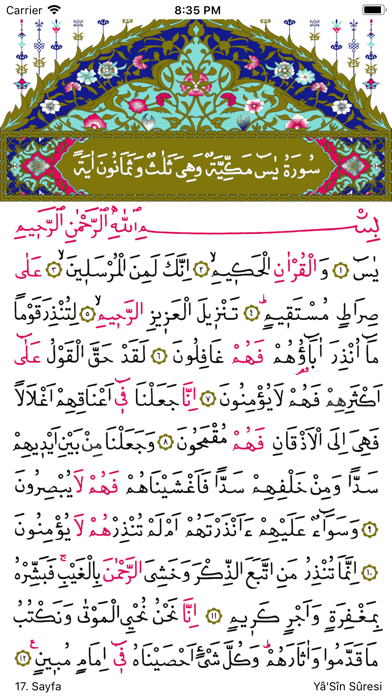 Carrier 8:35 PM
سُورَةُ يٰسٓ مَكِّيَّةٌ وَهِىَ ثَلٰثٌ وَثَمَانُونَ اٰيَةً
بِسْمِ اللّٰهِ الرَّحْمٰنِ الرَّحِيمِ
يٰسٓ ﴿١﴾ وَالْقُرْاٰنِ الْحَكِيمِۙ ﴿٢﴾ اِنَّكَ لَمِنَ الْمُرْسَلِينَۙ ﴿٣﴾ عَلٰى
صِرَاطٍ مُسْتَقِيمٍۜ ﴿٤﴾ تَنْزِيلَ الْعَزِيزِ الرَّحِيمِۙ ﴿٥﴾ لِتُنْذِرَ قَوْمًا
مَٓا اُنْذِرَ اٰبَٓاؤُ۬هُمْ فَهُمْ غَافِلُونَ ﴿٦﴾ لَقَدْ حَقَّ الْقَوْلُ عَلٰٓى
اَكْثَرِهِمْ فَهُمْ لَا يُؤْمِنُونَ ﴿٧﴾ اِنَّا جَعَلْنَا فِٓى اَعْنَاقِهِمْ اَغْلَالًا
فَهِىَ اِلَى الْاَذْقَانِ فَهُمْ مُقْمَحُونَ ﴿٨﴾ وَجَعَلْنَا مِنْ بَيْنِ اَيْدِيهِمْ
سَدًّا وَمِنْ خَلْفِهِمْ سَدًّا فَاَغْشَيْنَاهُمْ فَهُمْ لَا يُبْصِرُونَ
﴿٩﴾ وَسَوَٓاءٌ عَلَيْهِمْ ءَاَنْذَرْتَهُمْ اَمْ لَمْ تُنْذِرْهُمْ لَا يُؤْمِنُونَ
﴿١٠﴾ اِنَّمَا تُنْذِرُ مَنِ اتَّبَعَ الذِّكْرَ وَخَشِىَ الرَّحْمٰنَ بِالْغَيْبِۚ فَبَشِّرْهُ
بِمَغْفِرَةٍ وَاَجْرٍ كَرِيمٍ ﴿١١﴾ اِنَّا نَحْنُ نُحْيِ الْمَوْتٰى وَنَكْتُبُ
مَا قَدَّمُوا وَاٰثَارَهُمْۜ وَكُلَّ شَىْءٍ اَحْصَيْنَاهُ فِٓى اِمَامٍ مُبِينٍ۟ ﴿١٢﴾
17. Sayfa Yâ'Sîn Sûresi